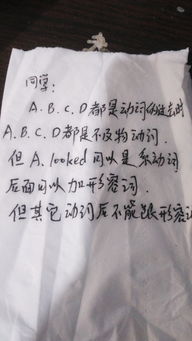 同学:
A.B.C.D都是动词的过去时
A.B.C.D都是不及物动词.
但A.looked可以是系动词
后面可以加形容词.
但其它动词后不能跟形容词